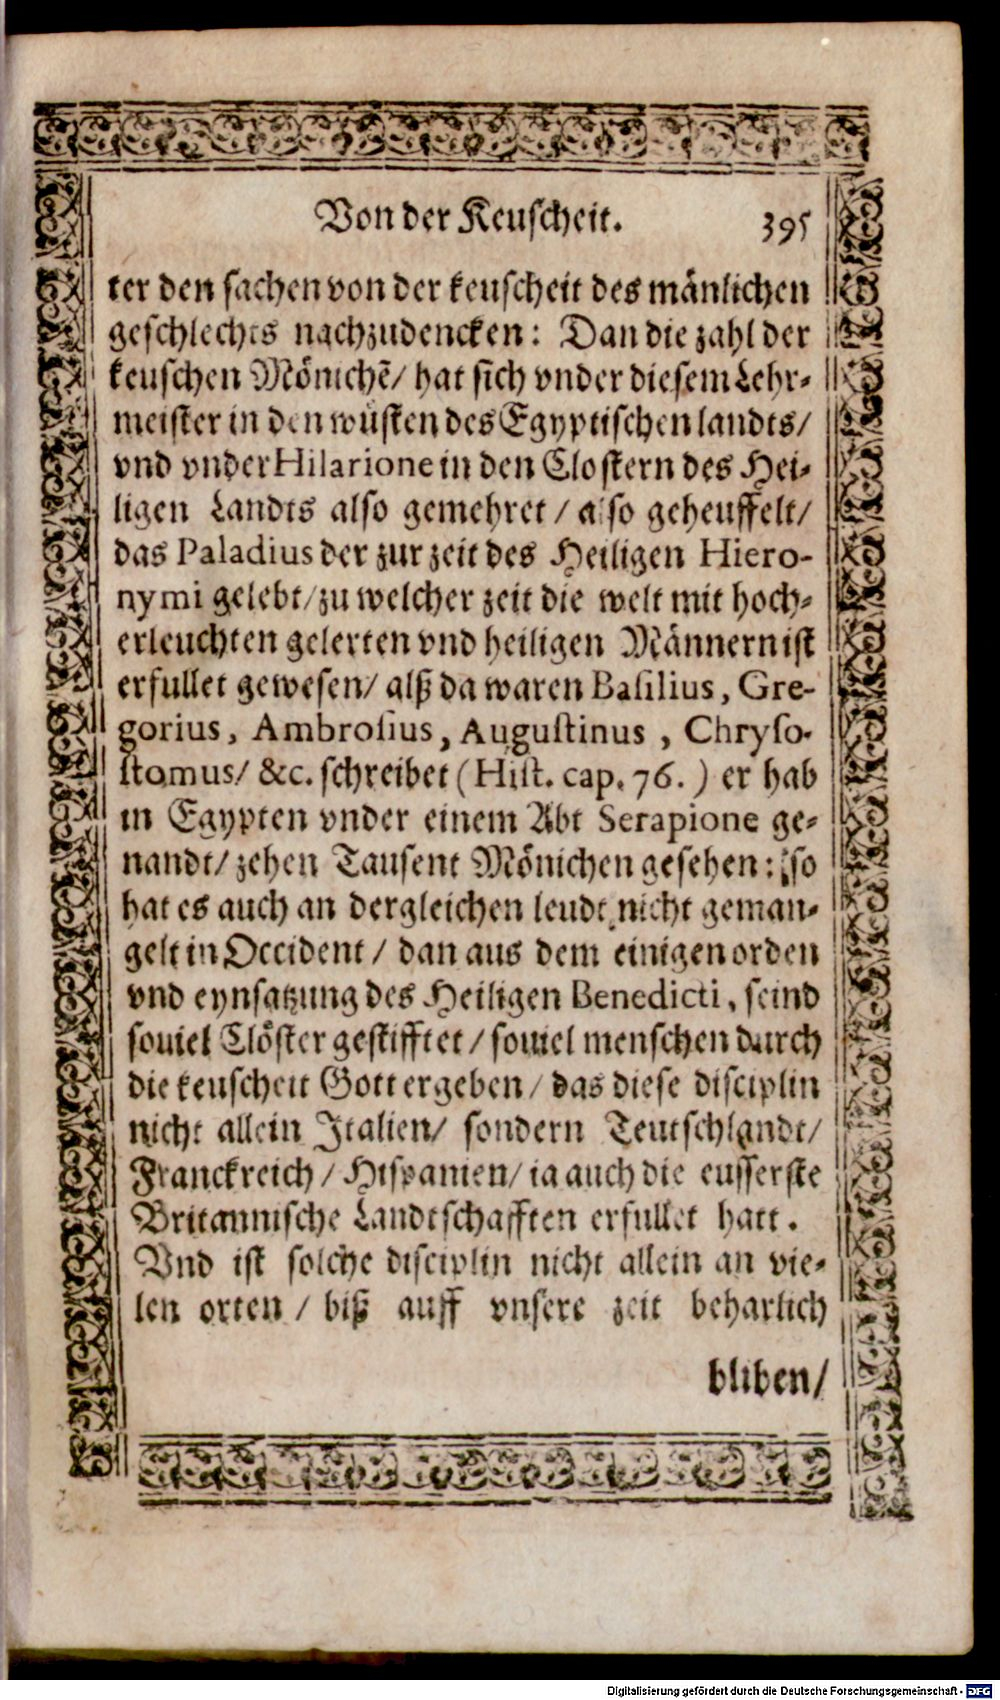 Von der Keuscheit. 395
ter den sachen von der keuscheit des mänlichen
geschlechts nachzudencken: Dan die zahl der
keuschen Mönichẽ/ hat sich vnder diesem Lehr-
meister in den wüsten des Egyptischen landts/
vnd vnder Hilarione in den Clostern des Hei-
ligen Landts also gemehret / also geheuffelt/
das Paladius der zur zeit des Heiligen Hiero-
nymi gelebt/ zu welcher zeit die welt mit hoch-
erleuchten gelerten vnd heiligen Männern ist
erfullet gewesen/ alß da waren Basilius, Gre-
gorius, Ambrosius, Augustinus , Chryso-
stomus/ &c. schreibet (Hist. cap. 76. ) er hab
in Egypten vnder einem Abt Serapione ge-
nandt/ zehen Tausent Mönichen gesehen: so
hat es auch an dergleichen leudt nicht geman-
gelt in Occident / dan aus dem einigen orden
vnd eynsatzung des Heiligen Benedicti, seind
souiel Clöster gestifftet / souiel menschen durch
die keuscheit Gott ergeben / das diese disciplin
nicht allein Italien/ sondern Teutschlandt/
Franckreich / Hispanien/ ia auch die eusserste
Britannische Landtschafften erfullet hatt.
Vnd ist solche disciplin nicht allein an vie-
len orten / biß auff vnsere zeit beharlich
bliben/
Digitalisierung gefördert durch die Deutsche Forschungsgemeinschaft - DFG